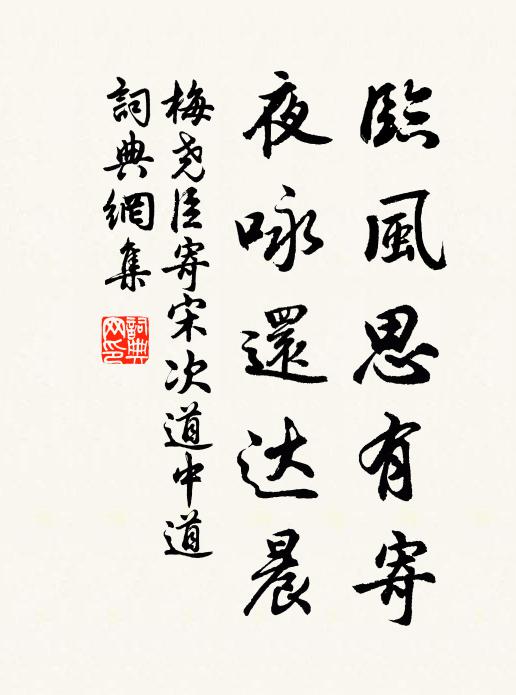 臨風思有寄
夜咏還达晨
梅尧臣寄宋次道中道
詞典網集
詞典网印